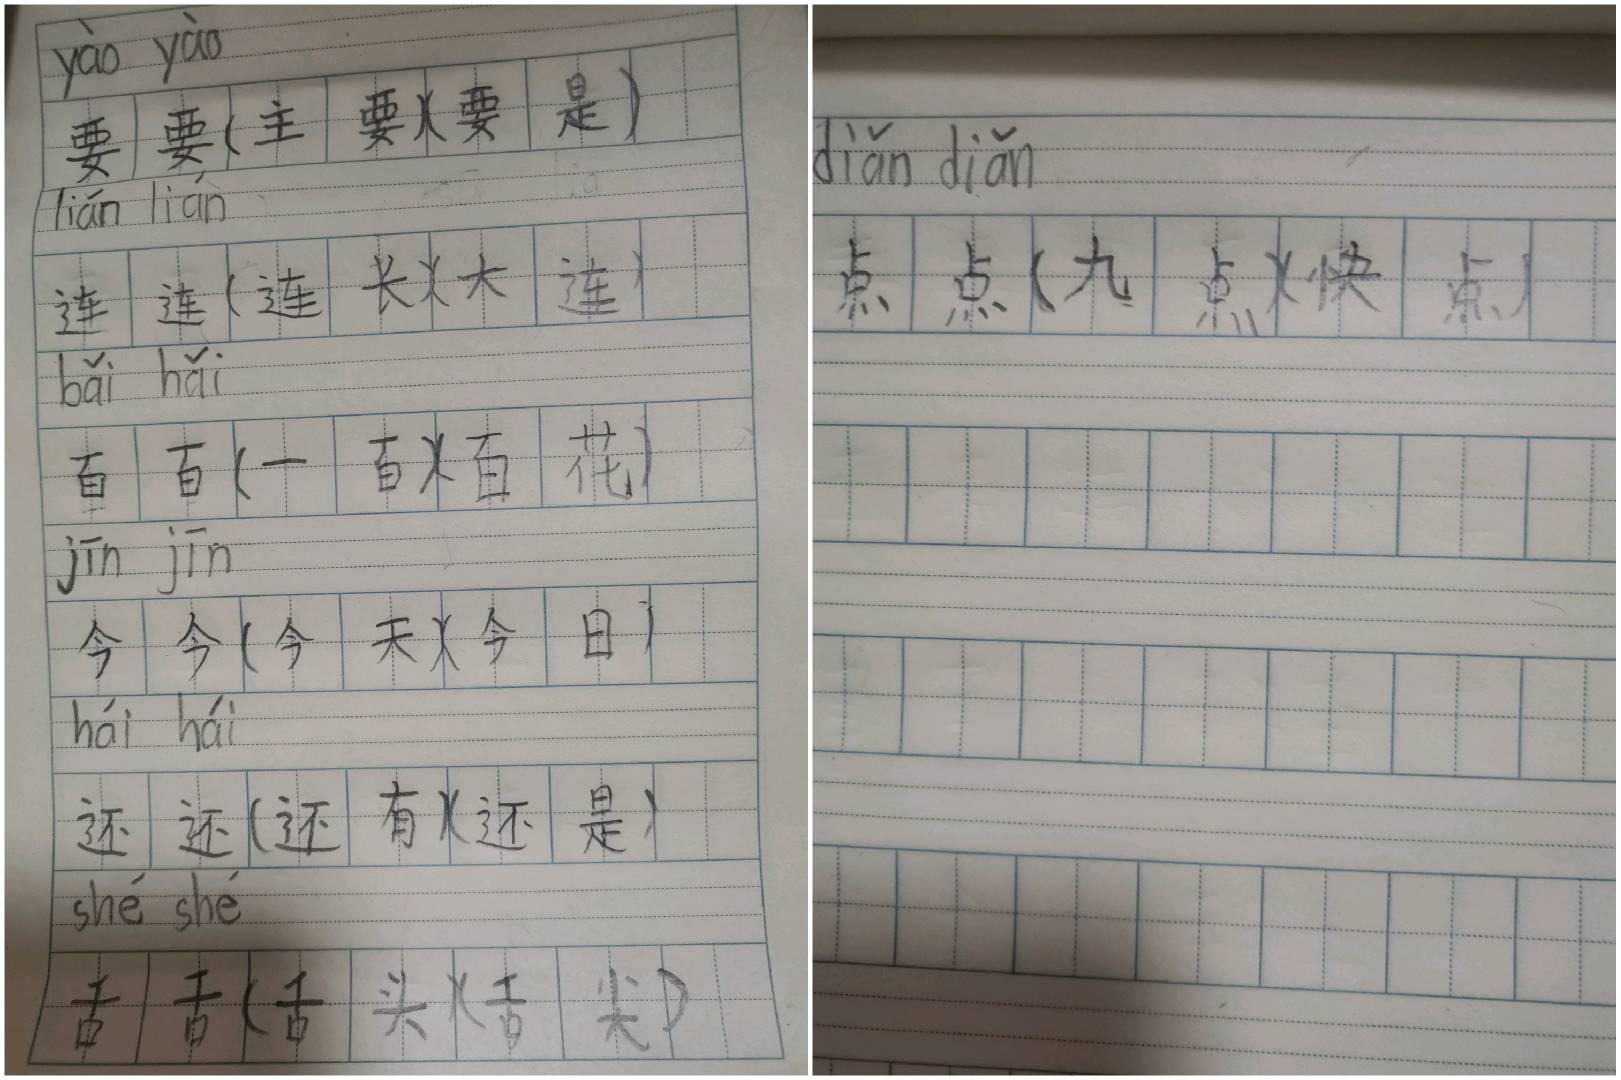 yào yào
要要(主要)(要是)
lián lián
连连(连长)(大连)
bǎi hǎi
百百(一百)(百花)
jīn jīn
今今(今天)(今日)
hái hái
还还(还有)(还是)
shé shé
舌舌(舌头)(舌尖)
diǎn diǎn
点点(九点)(快点)